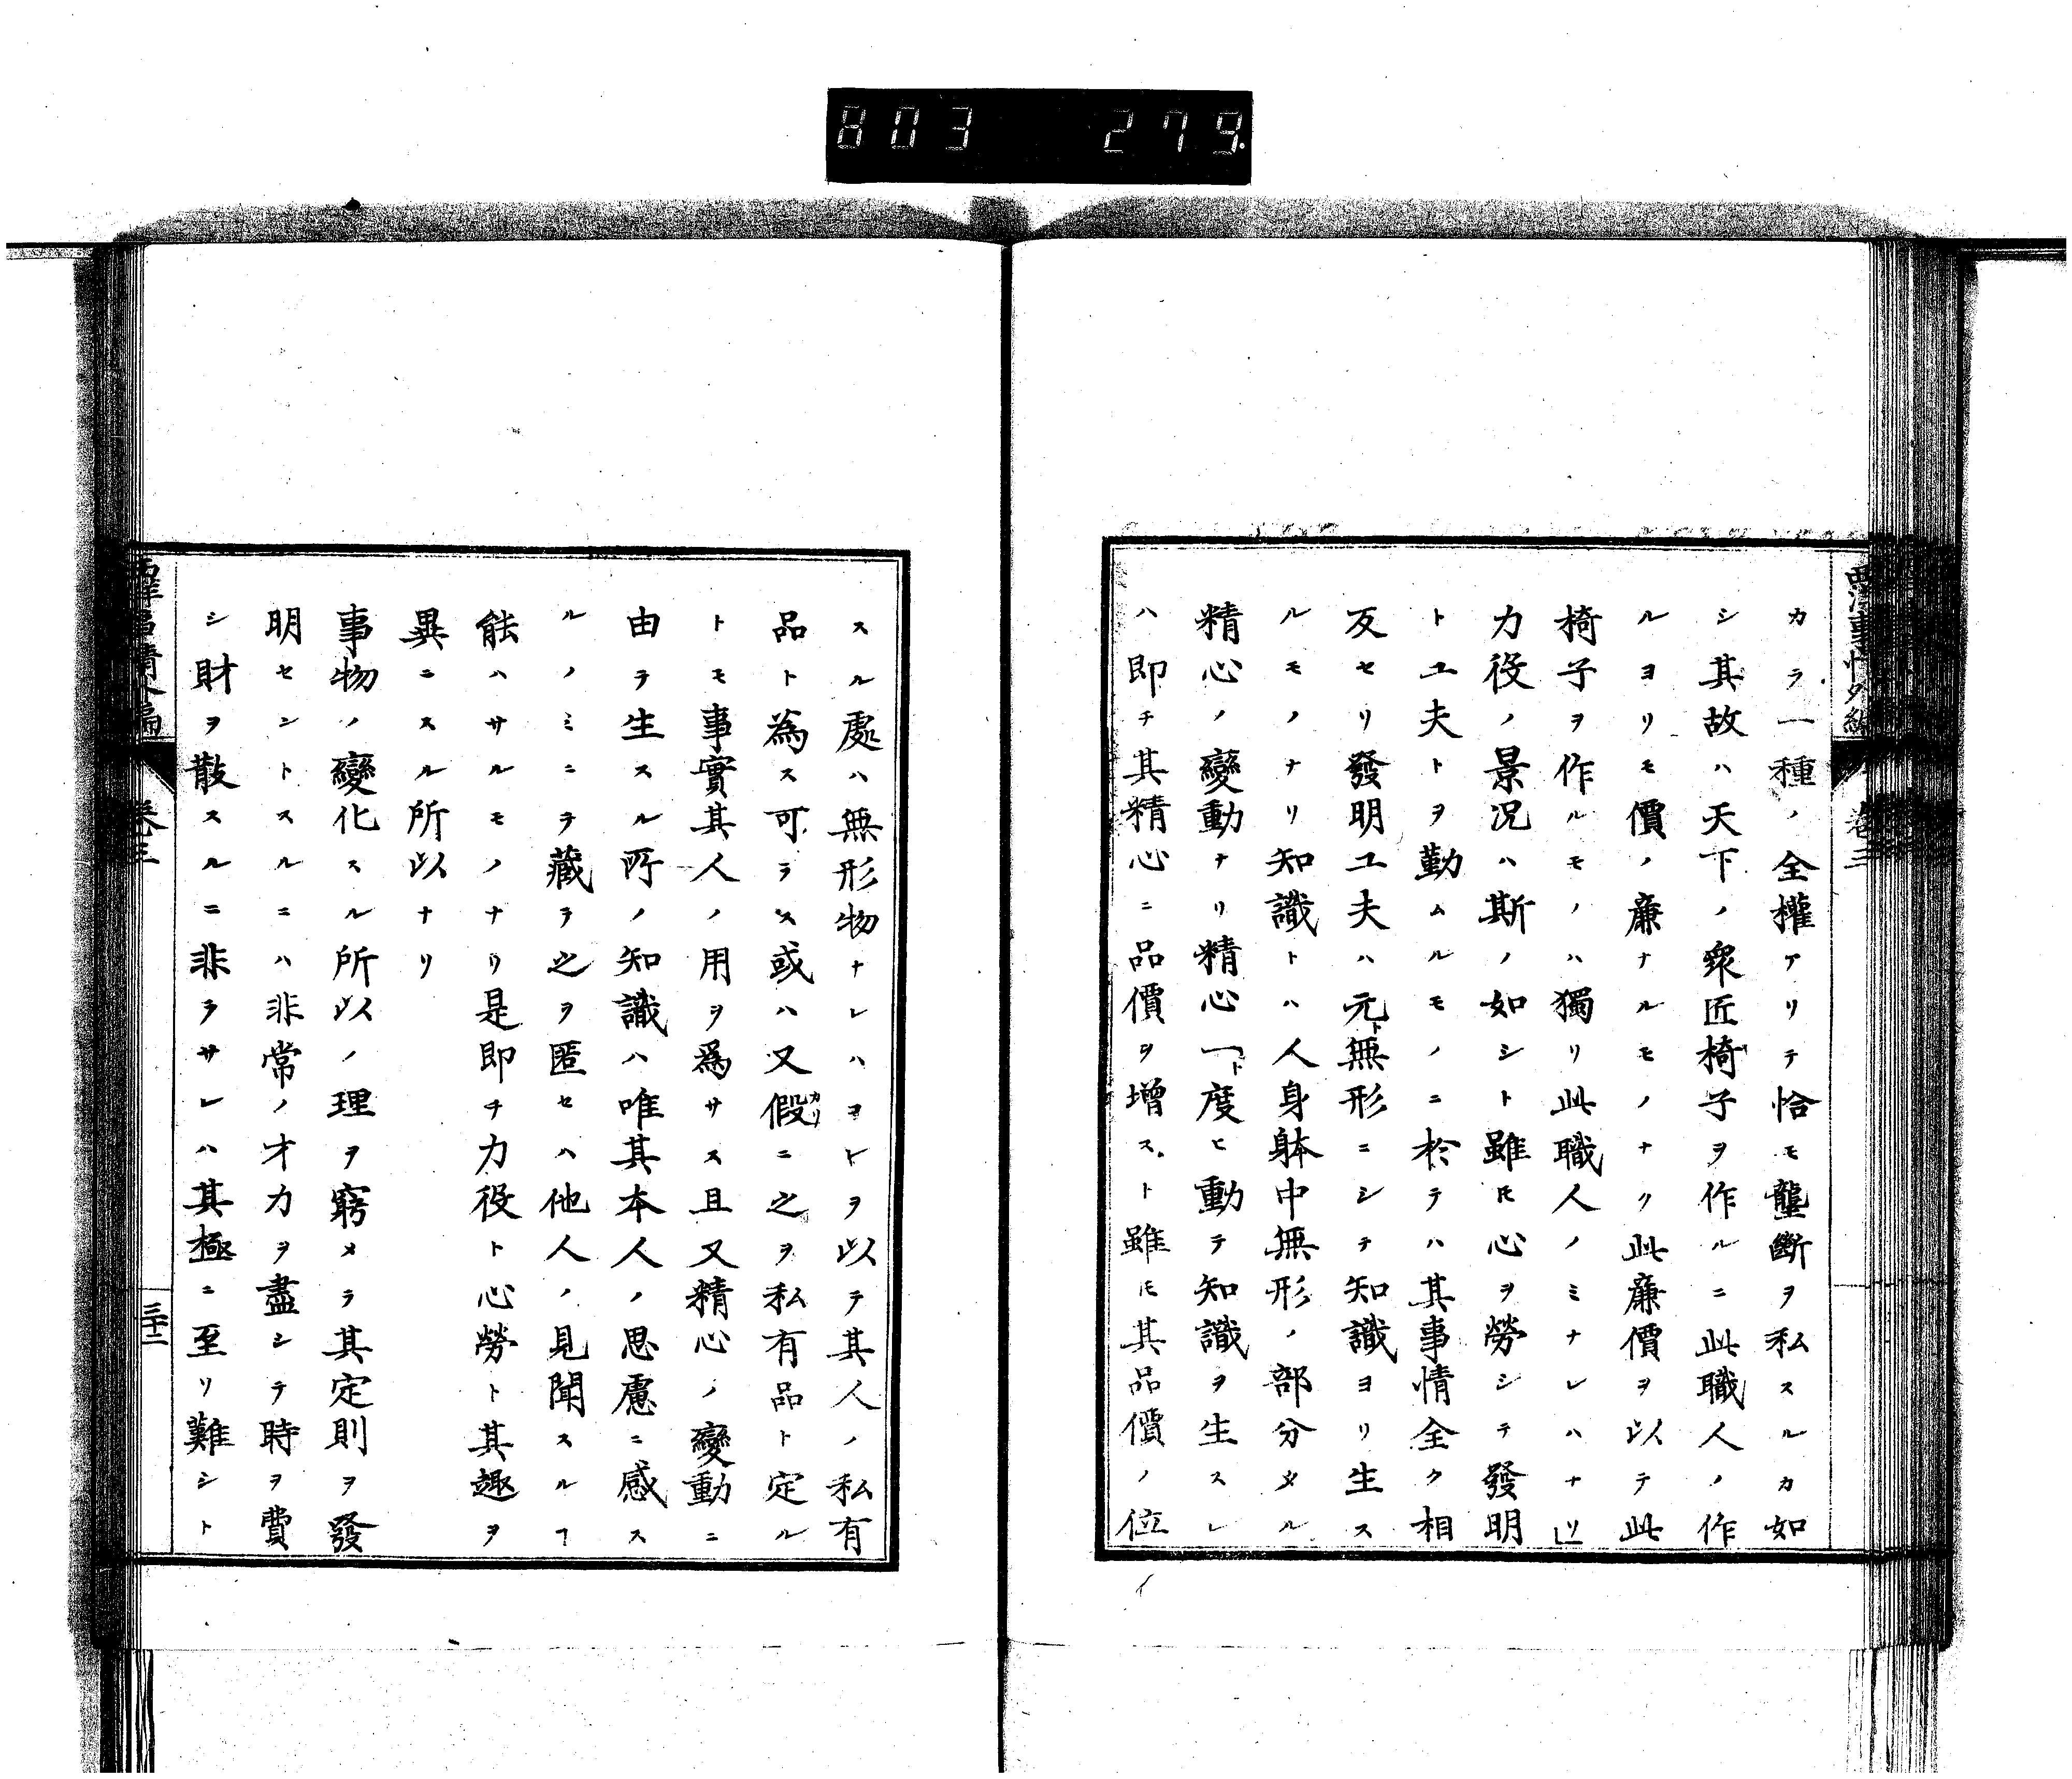 803 279
西洋事情外編 卷三
カラ一種ノ全權アリテ恰モ壟斷ヲ私スルカ如
シ其故ハ天下ノ衆匠椅子ヲ作ルニ此職人ノ作
ルヨリモ價ノ廉ナルモノナク此廉價ヲ以テ此
椅子ヲ作ルモノハ獨リ此職人ノミナレハナリ」
力役ノ景況ハ斯ノ如シト雖𪜈心ヲ勞シテ發明
ト工夫トヲ勤ムルモノニ於テハ其事情全ク相
反セリ發明工夫ハ元ト無形ニシテ知識ヨリ生ス
ルモノナリ知識トハ人身躰中無形ノ部分タル
精心ノ變動ナリ精心一ト度ヒ動テ知識ヲ生スレ
ハ即チ其精心ニ品價ヲ增スト雖𪜈其品價ノ位
スル處ハ無形物ナレハコレヲ以テ其人ノ私有
品ト為ス可ラス或ハ又假カリニ之ヲ私有品ト定ル
トモ事實其人ノ用ヲ爲サス且又精心ノ變動ニ
由テ生スル所ノ知識ハ唯其本人ノ思慮ニ感ス
ルノミニテ藏テ之ヲ匿セハ他人ノ見聞スルヿ
能ハサルモノナリ是即チ力役ト心勞ト其趣ヲ
異ニスル所以ナリ
事物ノ變化スル所以ノ理ヲ窮メテ其定則ヲ發
明セントスルニハ非常ノ才力ヲ盡シテ時ヲ費
シ財ヲ散スルニ非ラサレハ其極ニ至リ難シト
西洋事情外編 卷三 三十二